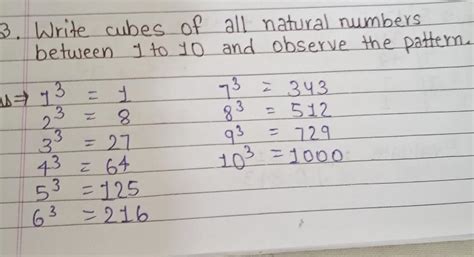 3. Write cubes of all natural numbers
between 1 to 10 and observe the pattern.
⇒ 1³ = 1
2³ = 8
3³ = 27
4³ = 64
5³ = 125
6³ = 216
7³ = 343
8³ = 512
9³ = 729
10³ = 1000